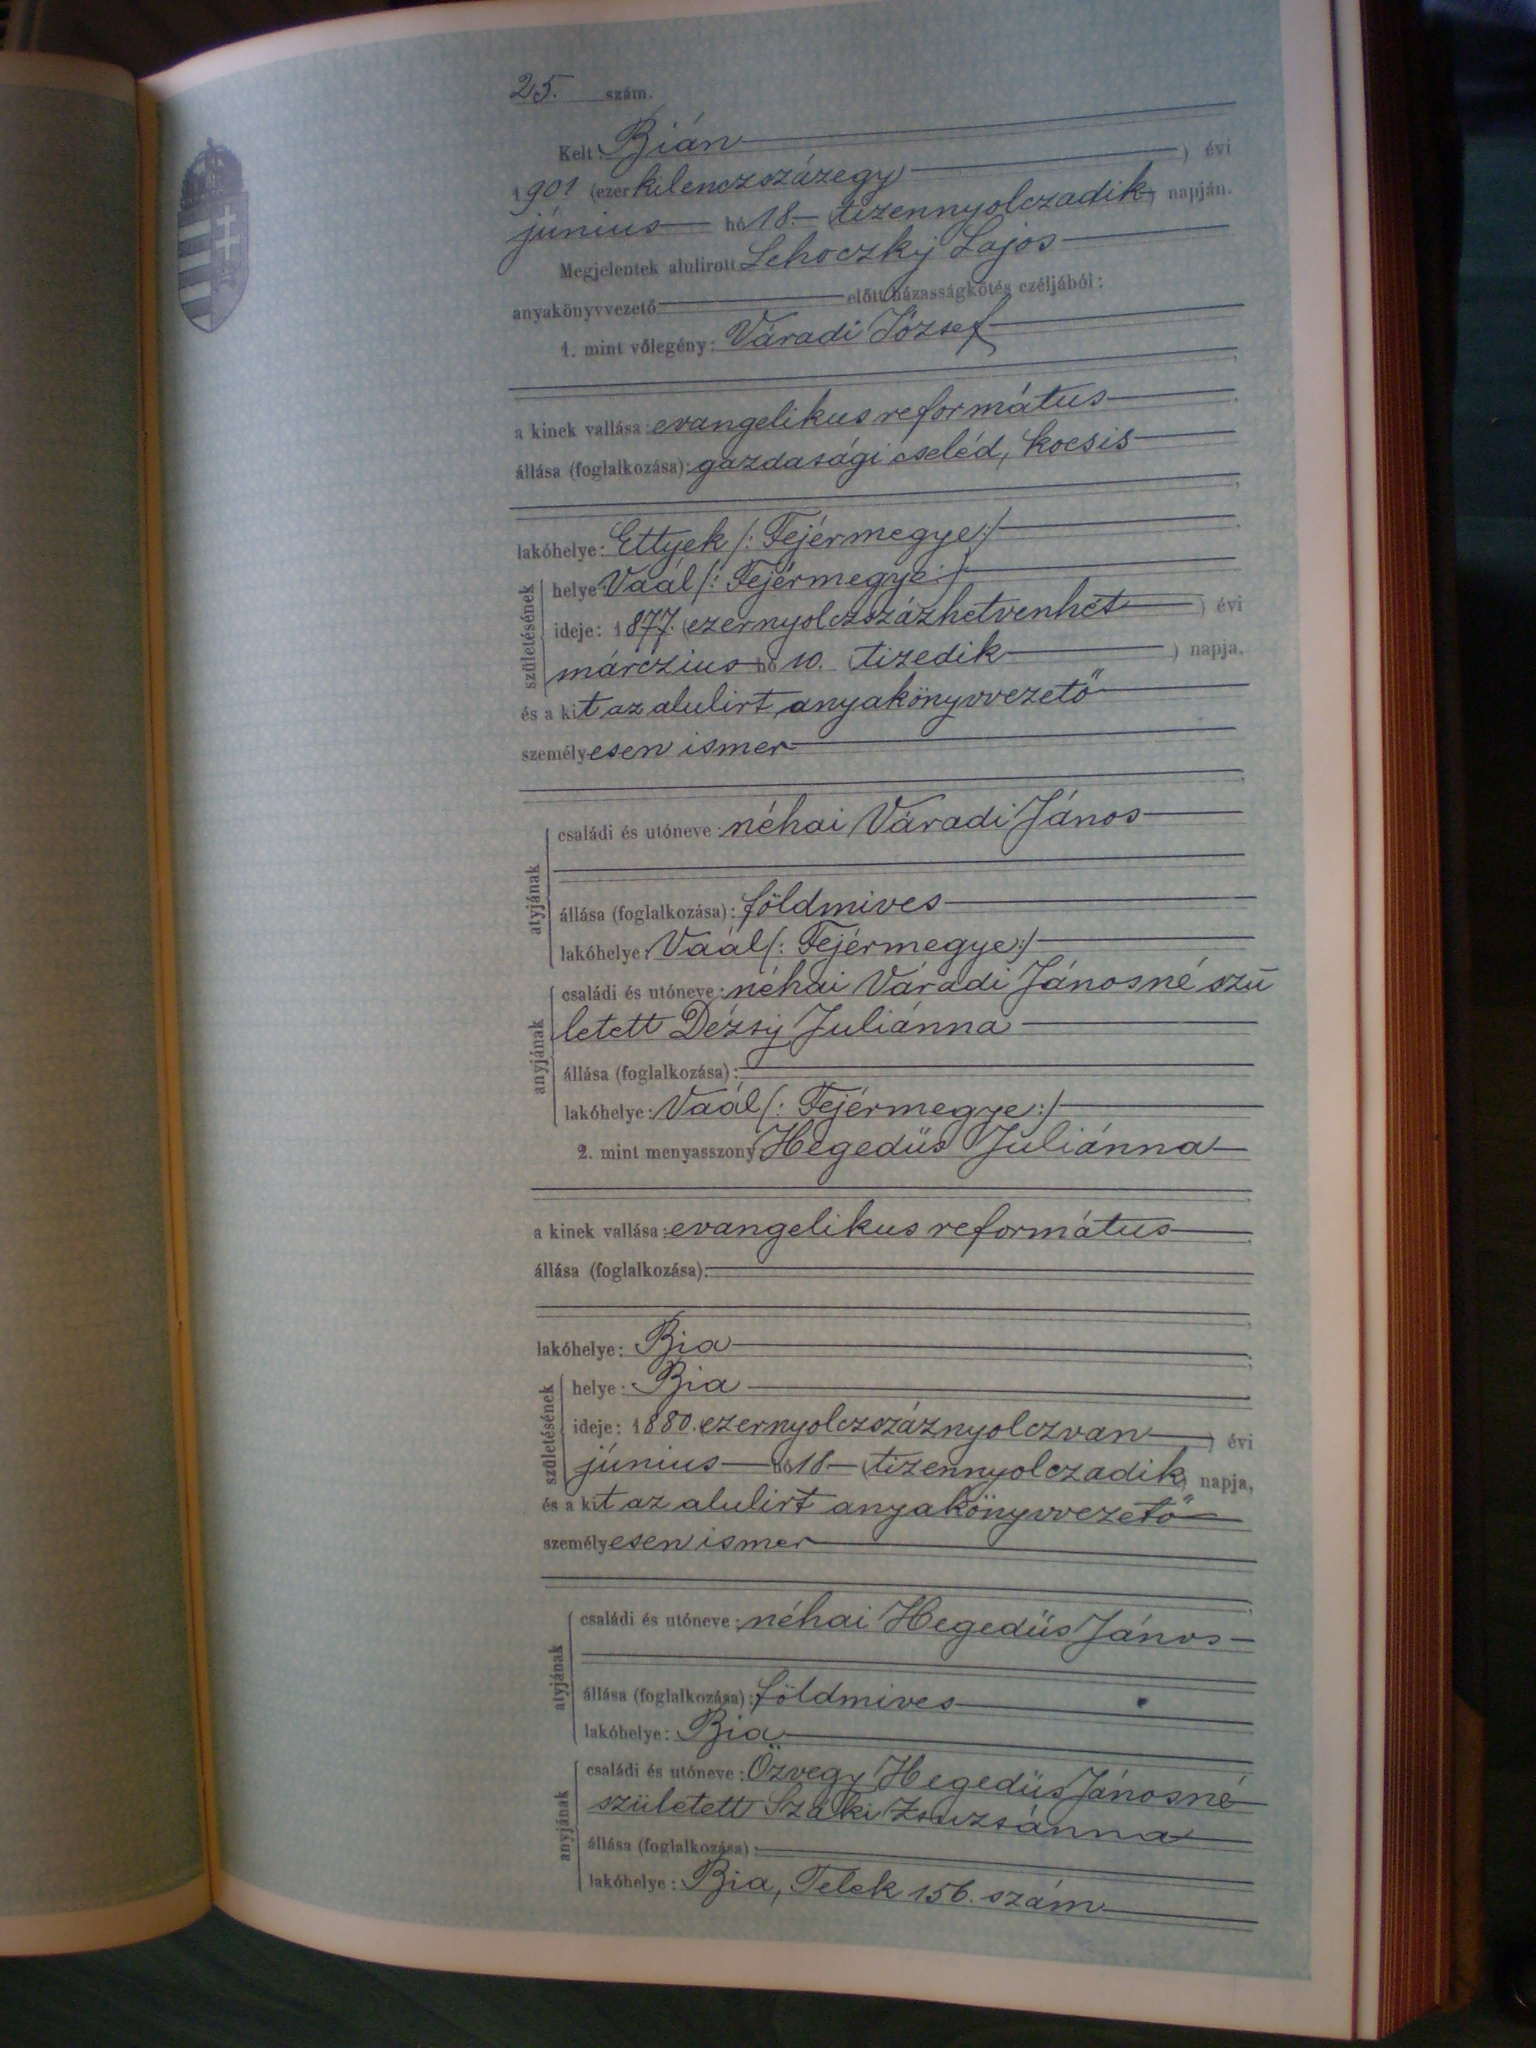 25. szám.
Kelt: Bián
1901 (ezerkilenczszázegy) évi
június hó 18. (tizennyolczadik) napján.
Megjelentek alulirott Lehoczky Lajos
anyakönyvvezető előtt házasságkötés czéljából:
1. mint vőlegény: Váradi József
a kinek vallása: evangelikus református
állása (foglalkozása): gazdasági cseléd, kocsis
lakóhelye: Ettyek /: Fejérmegye :/
születésének
helye: Vaál /: Fejérmegye :/
ideje: 1877. (ezernyolczszázhetvenhét) évi
márczius hó 10. (tizedik) napja,
és a kit az alulirt anyakönyvvezető
személyesen ismer
atyjának
családi és utóneve: néhai Váradi János
állása (foglalkozása): földmives
lakóhelye: Vaál /: Fejérmegye :/
anyjának
családi és utóneve: néhai Váradi Jánosné szü
letett Dézsy Juliánna
állása (foglalkozása):
lakóhelye: Vaál /: Fejérmegye :/
2. mint menyasszony Hegedüs Juliánna
a kinek vallása: evangelikus református
állása (foglalkozása):
lakóhelye: Bia
születésének
helye: Bia
ideje: 1880. (ezernyolczszáznyolczvan) évi
június hó 18 (tizennyolczadik) napja,
és a kit az alulirt anyakönyvvezető
személyesen ismer
atyjának
családi és utóneve: néhai Hegedüs János
állása (foglalkozása): földmives
lakóhelye: Bia
anyjának
családi és utóneve: Özvegy Hegedüs Jánosné
született Száki Zsuzsánna
állása (foglalkozása):
lakóhelye: Bia, Telek 156. szám